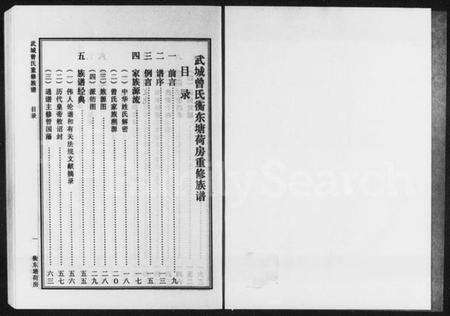 武城曾氏衡东塘荷房重修族谱
目录
一 前言……九
二 谱序……一三
三 例言……一五
四 家族源流……一七
(一) 中华姓氏解密……一八
(二) 曾氏家族溯源……二〇
(三) 族源图……二八
(四) 派衍图……二九
五 族谱经典……五五
(一) 伟人论谱和有关法规文献摘录……五六
(二) 历代皇帝敕诏封……五七
(三) 通谱主修曾国藩……六三
武城曾氏重修族谱
目录
一
衡东塘荷房